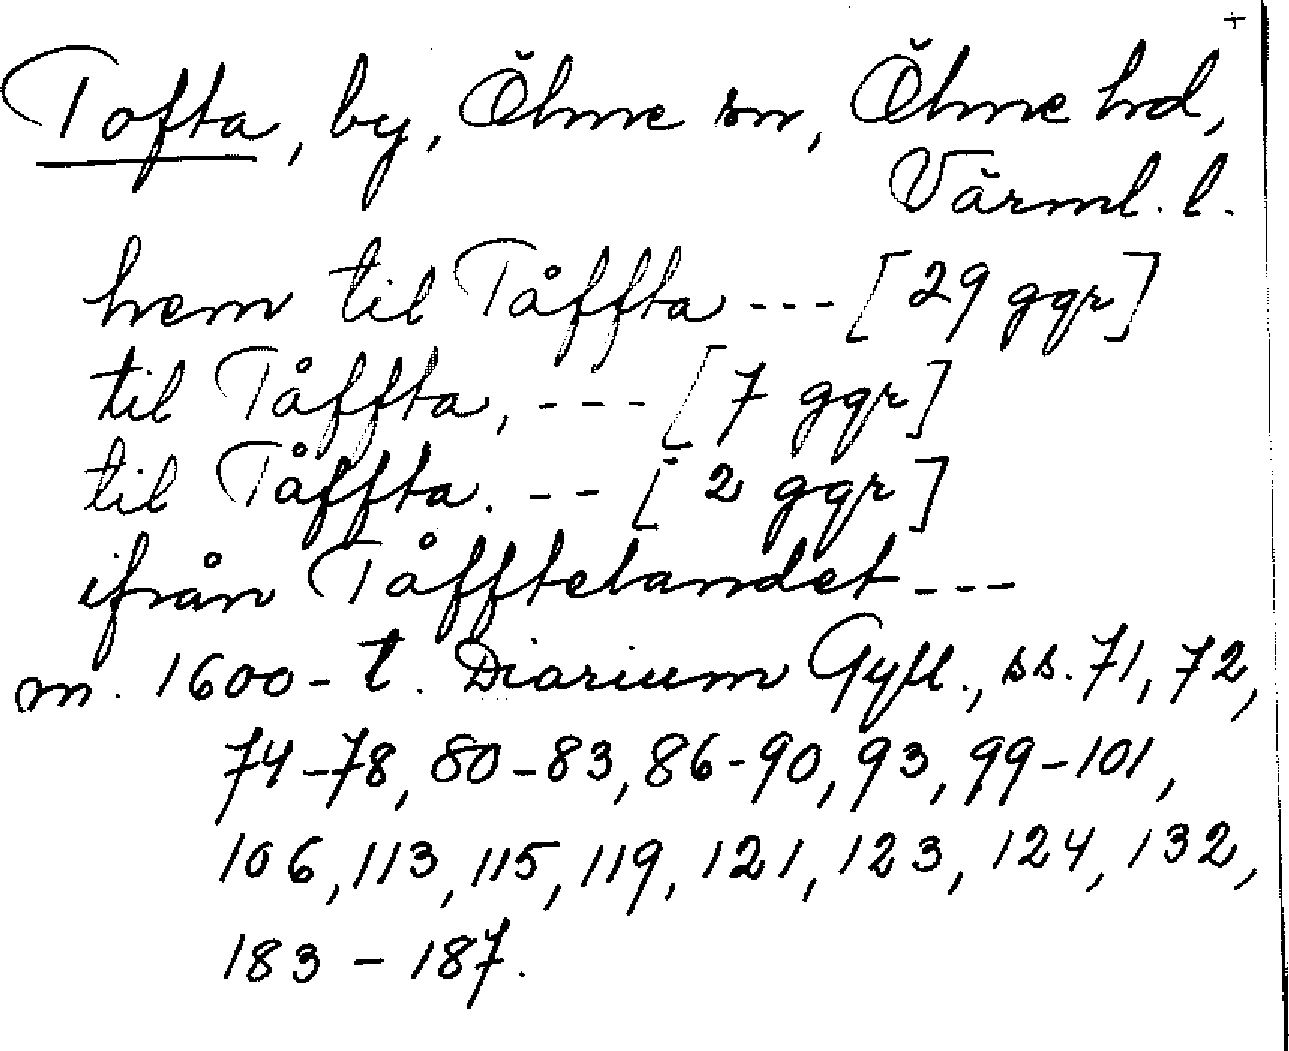 +
Tofta, by, Ölme sn, Ölme hd,
Värml. l.
hem til Tåffta --- [29 ggr]
til Tåffta, --- [7 ggr]
til Tåffta. -- [2 ggr]
ifrån Tåfftelandet ---
m. 1600-t. Diarium Gyll., ss. 71, 72,
74-78, 80-83, 86-90, 93, 99-101,
106, 113, 115, 119, 121, 123, 124, 132,
183-187.